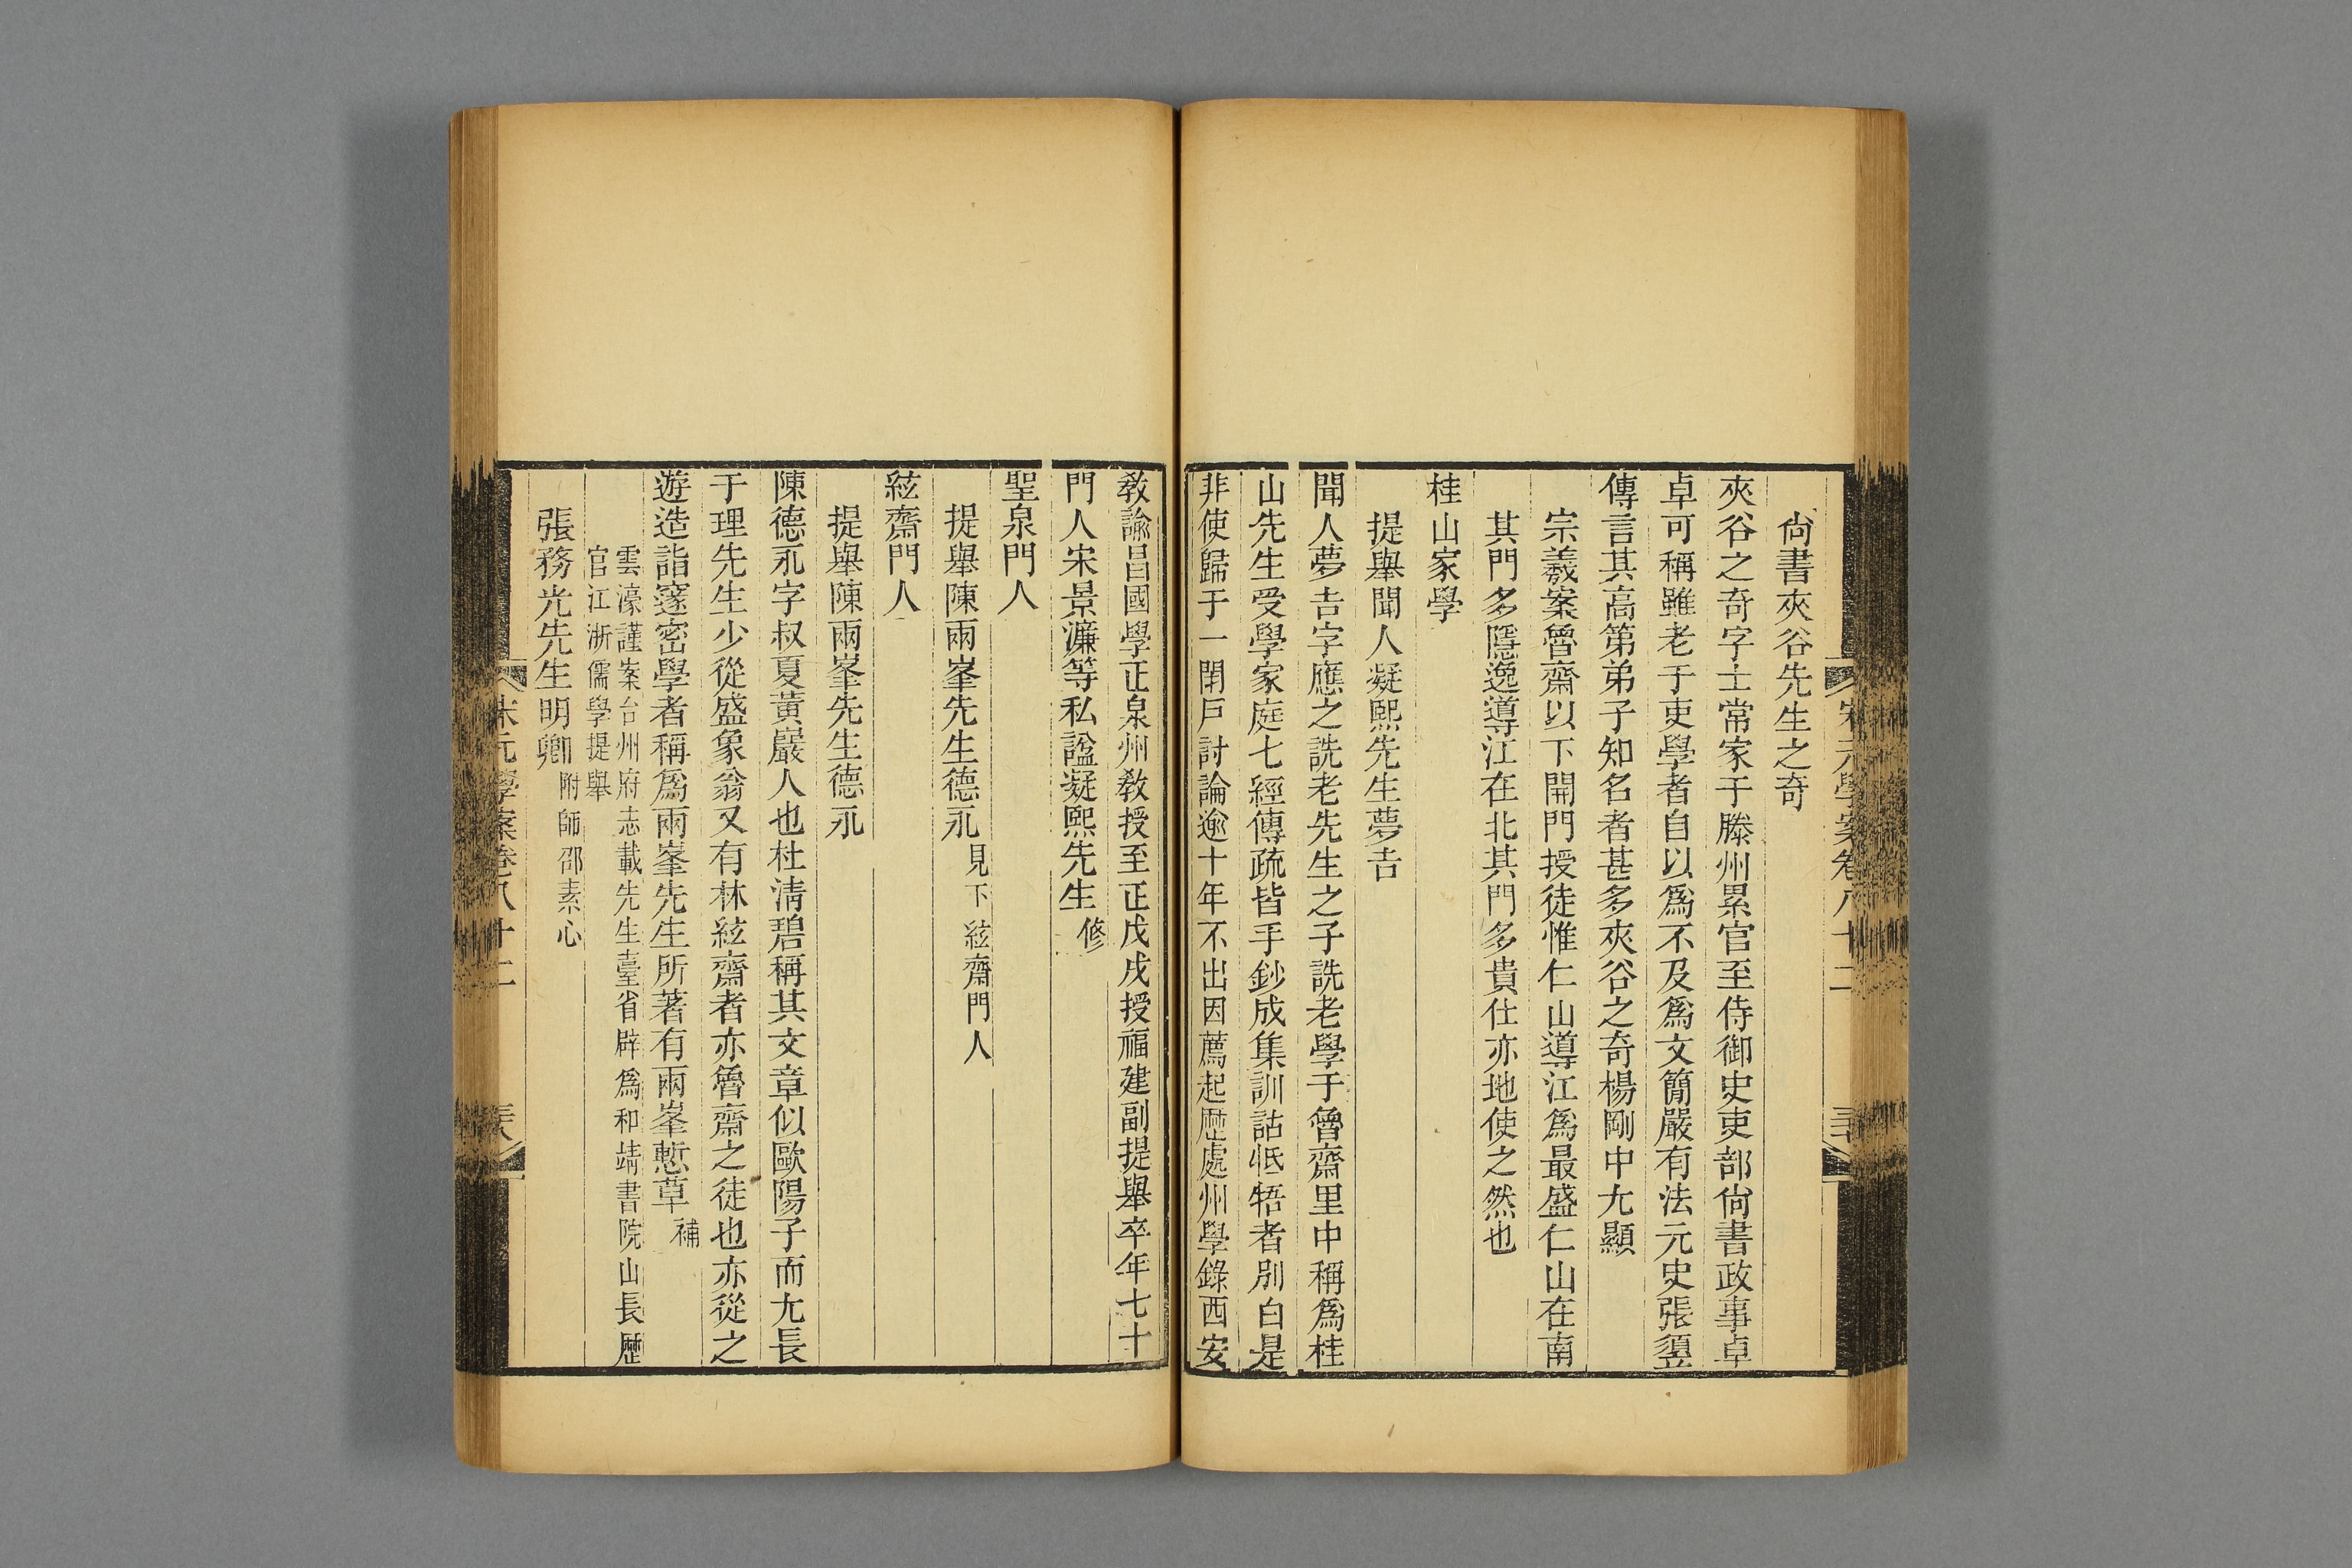 尙書夾谷先生之奇
夾谷之奇字士常家于滕州累官至侍御史吏部尙書政事卓
卓可稱雖老于吏學者自以爲不及爲文簡嚴有法元史張𩓣
傳言其高第弟子知名者甚多夾谷之奇楊剛中尤顯
宗羲案魯齋以下開門授徒惟仁山導江爲最盛仁山在南
其門多隱逸導江在北其門多貴仕亦地使之然也
桂山家學
提舉聞人凝熙先生夢吉
聞人夢吉字應之詵老先生之子詵老學于魯齋里中稱爲桂
山先生受學家庭七經傳疏皆手鈔成集訓詁牴牾者別白是
非使歸于一閉戶討論逾十年不出因薦起歷處州學錄西安
敎諭昌國學正泉州敎授至正戊戌授福建副提舉卒年七十
門人宋景濂等私諡凝熙先生 修
聖泉門人
提舉陳兩峯先生德永 見下絃齋門人
絃齋門人
提舉陳兩峯先生德永
陳德永字叔夏黃巖人也杜淸碧稱其文章似歐陽子而尤長
于理先生少從盛象翁又有林絃齋者亦魯齋之徒也亦從之
遊造詣邃密學者稱爲兩峯先生所著有兩峯慙草 補
雲濠謹案台州府志載先生臺省辟爲和靖書院山長歷
官江浙儒學提舉
張務光先生明卿 附師邵素心
宋元學案卷八十二